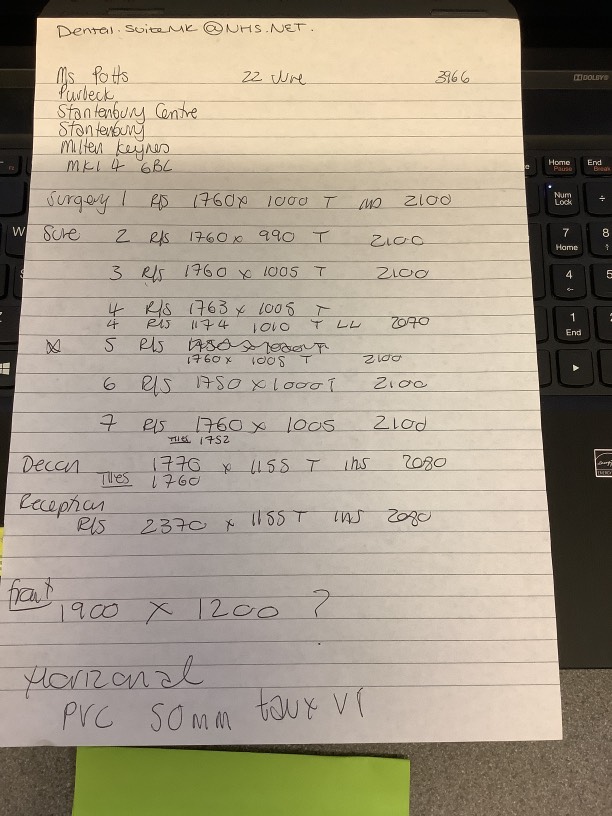 Dental.SuiteMK@NHS.NET.
Ms Potts 22 June 3966
Purbeck
Stantenbury Centre
Stantenbury
Milten Keynes
MK14 6BL
Surgery 1 R/S 1760 x 1000 T INS 2100
Sure 2 R/S 1760 x 990 T 2100
3 R/S 1760 x 1005 T 2100
4 R/S 1763 x 1008 T
4 R/S 1174 1010 T LL 2070
5 R/S
1760 x 1008 T 2100
6 R/S 1750 x 1000T 2100
7 R/S 1760 x 1005 2100
Tiles 1752
Decon 1770 x 1155 T INS 2080
Tiles 1760
Reception
R/S 2370 x 1155 T INS 2080
front
1900 x 1200 ?
Horizonal
PVC 50mm faux VI
DOLBY
Home Pause
End Break
Num Lock
÷
W
7 Home
8
4
5
1 End
ENERGY